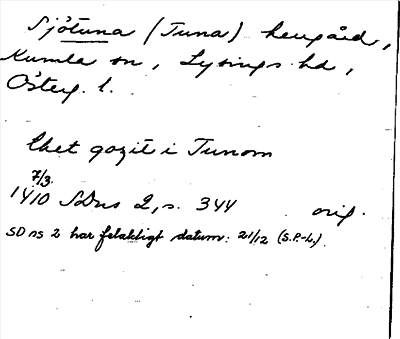 Sjötuna (Tuna) herrgård,
Kumla sn, Lysings hd,
Österg. l.
thet gozit i Tunom
7/3.
1410 SDns 2, s. 344 orig.
SD ns 2 har felaktigt datum: 21/12 (S.P.-L.).